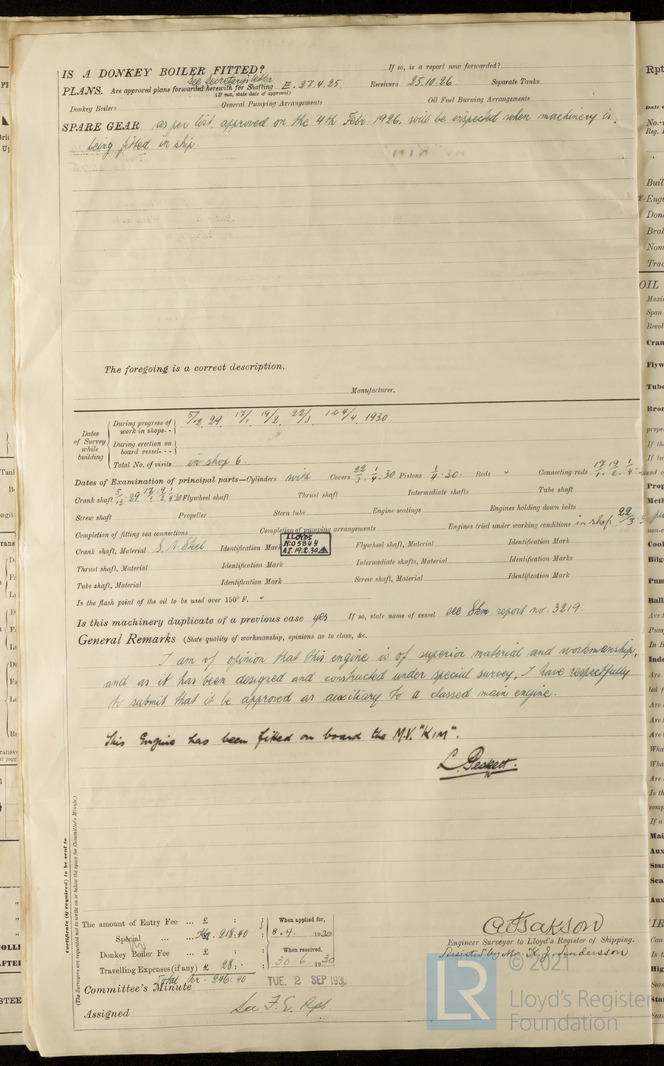 IS A DONKEY BOILER FITTED?
If so, is a report now forwarded?
See Secretary's letter
PLANS. Are approved plans forwarded herewith for Shafting E. 27.4.25 Receivers 25.10.26 Separate Tanks
(If not, state date of approval)
Donkey Boilers General Pumping Arrangements Oil Fuel Burning Arrangements
SPARE GEAR as per list, approved on the 4th Febr. 1926, will be inspected when machinery is
being fitted in ship.
The foregoing is a correct description,
Manufacturer.
Dates of Survey while building
During progress of work in shops - - 5/12 29 17/1 19/2 22/3 1 & 4/4 1930
During erection on board vessel - - -
Total No. of visits in shop 6.
Dates of Examination of principal parts—Cylinders with Covers 22/3 1/4 30 Pistons 1/4 30. Rods " Connecting rods 17/1 19/2 1/4
Crank shaft 5/12 29 Flywheel shaft Thrust shaft Intermediate shafts Tube shaft
Screw shaft Propeller Stern tube Engine seatings Engines holding down bolts
Completion of fitting sea connections Completion of pumping arrangements Engines tried under working conditions in shop 22/3
Crank shaft, Material S. M. Steel Identification Mark LLOYDS NO 5844 A.J. 19.2.30 Flywheel shaft, Material Identification Mark
Thrust shaft, Material Identification Mark Intermediate shafts, Material Identification Marks
Tube shaft, Material Identification Mark Screw shaft, Material Identification Mark
Is the flash point of the oil to be used over 150°F. "
Is this machinery duplicate of a previous case yes If so, state name of vessel see Skm report no. 3219.
General Remarks (State quality of workmanship, opinions as to class, &c.
I am of opinion that this engine is of superior material and workmanship,
and as it has been designed and constructed under special survey, I have respectfully
to submit that it be approved as auxiliary to a classed main engine.
This Engine has been fitted on board the M.V. "KIM".
Certificate (if required) to be sent to
(The Surveyors are requested not to write on or below the space for Committee's Minute.)
The amount of Entry Fee ... £ : :
Special ... ... Kr. 218.40 :
Donkey Boiler Fee ... £ : :
Travelling Expenses (if any) £ 28 : - :
Total Kr. 246.40
When applied for,
8.4. 1930
When received,
30.6 1930
Engineer Surveyor to Lloyd's Register of Shipping.
Assisted by Mr. K. J. Sandersson
Committee's Minute TUE. 2 SEP 193
Assigned See F. E. Rpt
LR
© 2021
Lloyd's Register
Foundation